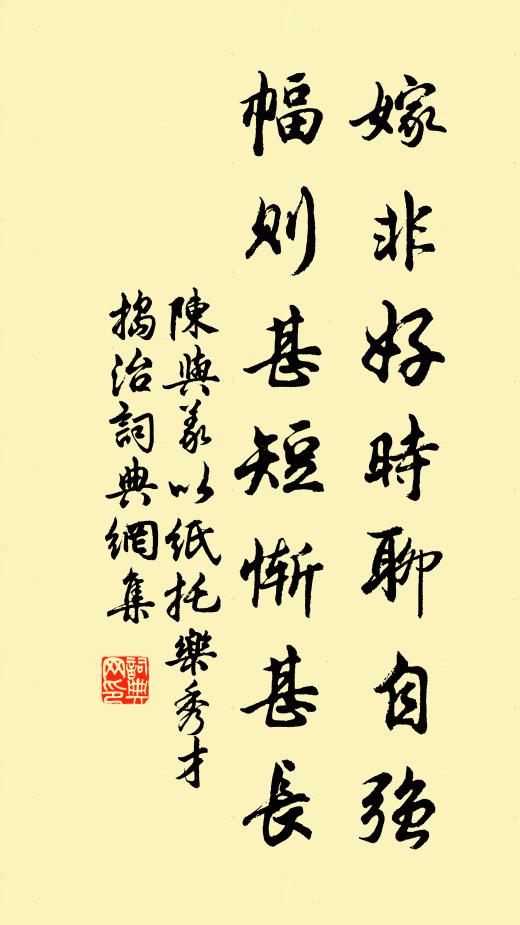 嫁非好時聊自強
幅則甚短慚甚長
陳與義以紙托樂秀才
搗治詞典網集
詞典網印